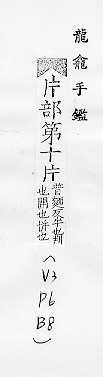 龍龕手鑑
片部第十片普麵反半也判
也開也併也
(V3
P6
B8
)